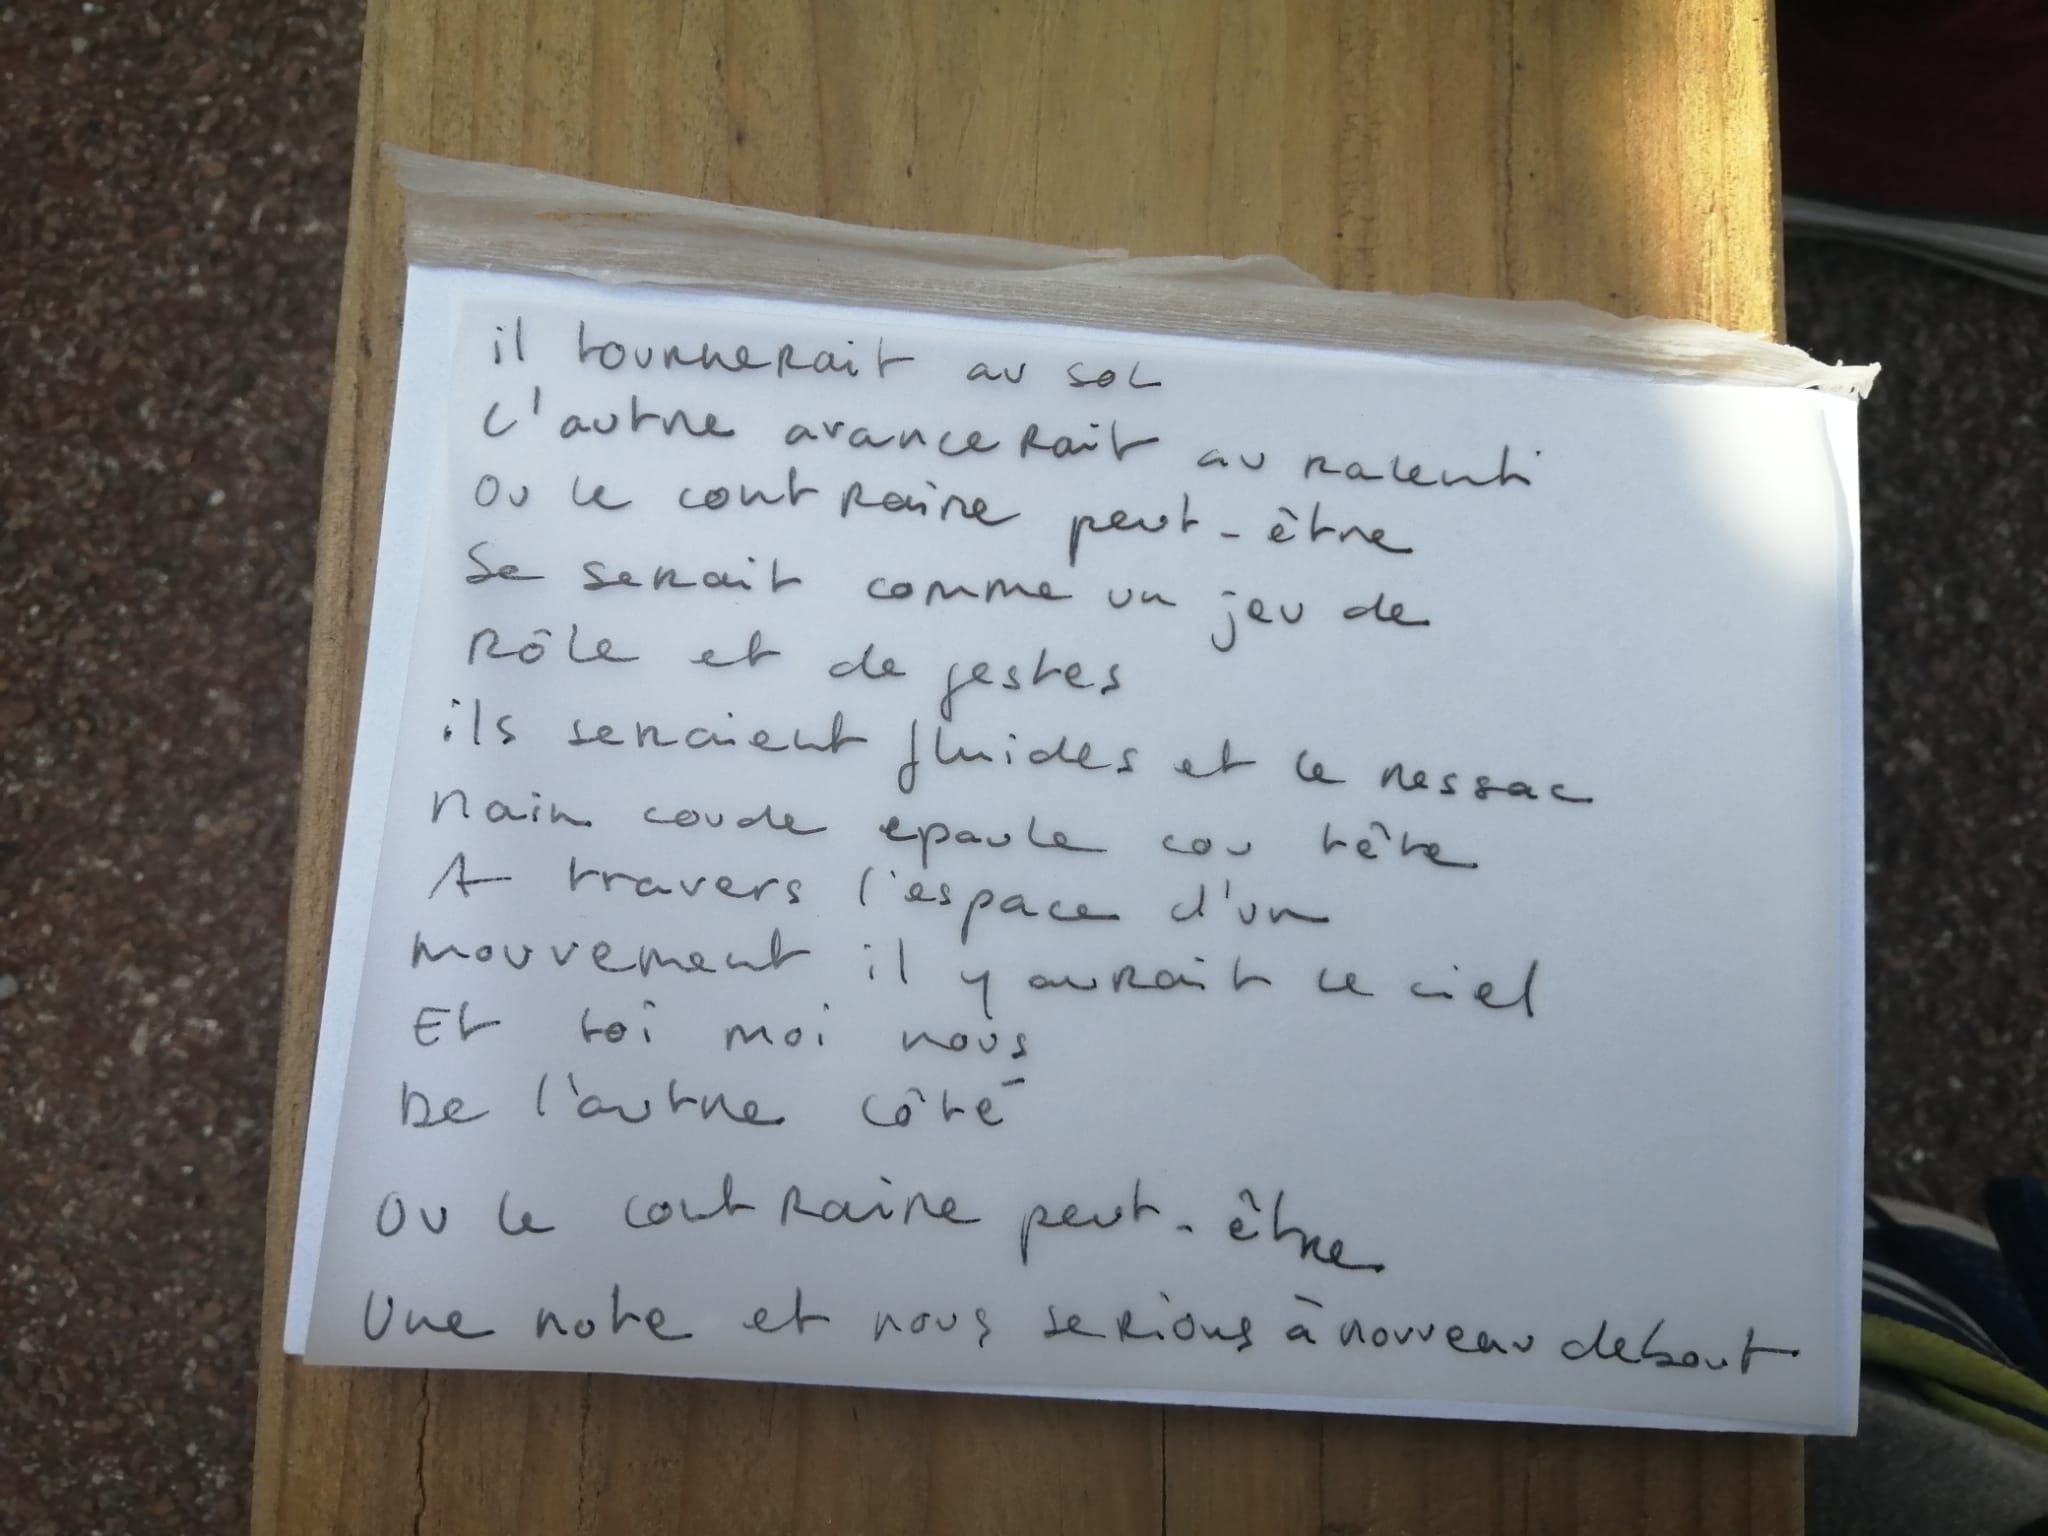 il tournerait au sol
L'autre avancerait au ralenti
Ou le contraire peut-être
Se serait comme un jeu de
Rôle et de gestes
ils seraient fluides et le ressac
Main coude epaule cou tête
A travers l'espace d'un
mouvement il y aurait le ciel
Et toi moi nous
De l'autre côté
Ou le contraire peut-être
Une note et nous serions à nouveau debout